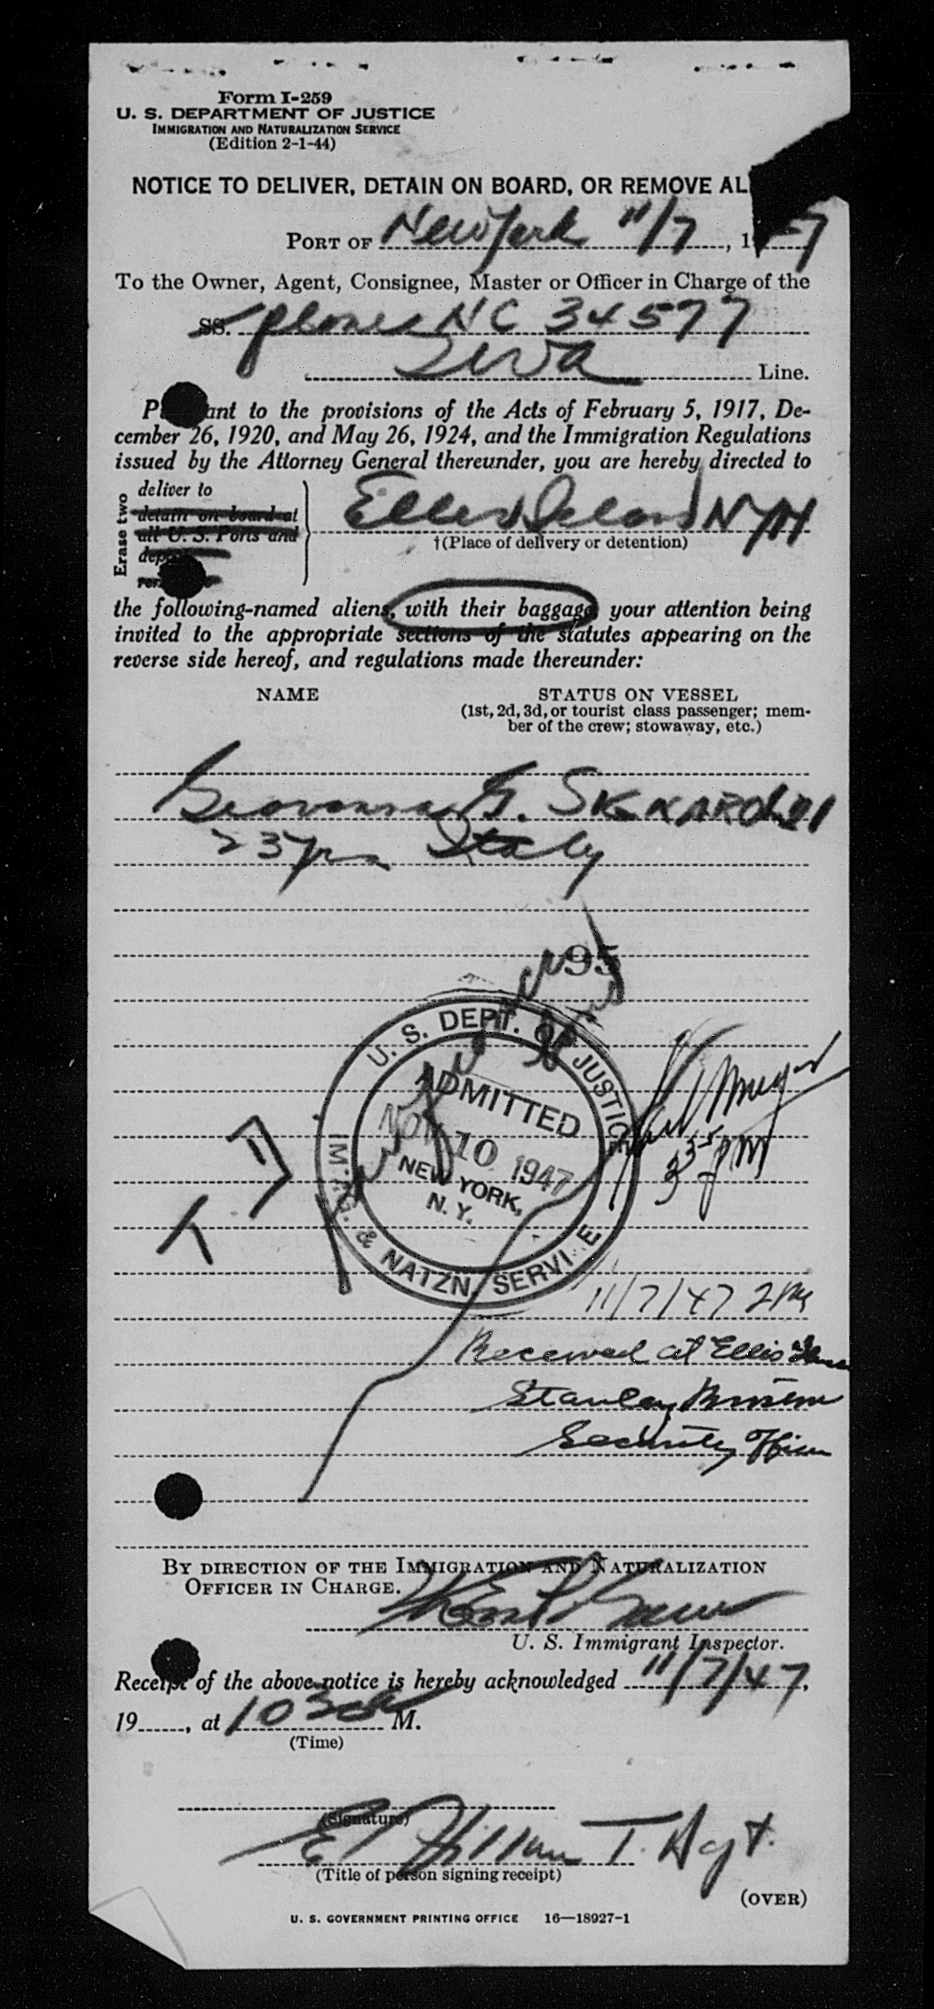 Form I-259
U. S. DEPARTMENT OF JUSTICE
IMMIGRATION AND NATURALIZATION SERVICE
(Edition 2-1-44)
NOTICE TO DELIVER, DETAIN ON BOARD, OR REMOVE AL
PORT OF New York 11/7, 1 7
To the Owner, Agent, Consignee, Master or Officer in Charge of the
SS. plane NC 34577
Line.
P ant to the provisions of the Acts of February 5, 1917, De-
cember 26, 1920, and May 26, 1924, and the Immigration Regulations
issued by the Attorney General thereunder, you are hereby directed to
Erase two
deliver to
detain on board at
all U. S. Ports and
dep
Ellis Island NYH
†(Place of delivery or detention)
the following-named aliens, with their baggage, your attention being
invited to the appropriate sections of the statutes appearing on the
reverse side hereof, and regulations made thereunder:
NAME
STATUS ON VESSEL
(1st, 2d, 3d, or tourist class passenger; mem-
ber of the crew; stowaway, etc.)
Giovanna G.
23 yrs Italy
95
U. S. DEPT. OF JUSTICE
ADMITTED
NOV 10 1947
NEW YORK,
N. Y.
IM'G. & NATZN. SERVICE
3 35 PM
11/7/47 2 PM
Received at Ellis
Stanley
Security Officer
BY DIRECTION OF THE IMMIGRATION AND NATURALIZATION
OFFICER IN CHARGE.
U. S. Immigrant Inspector.
Receipt of the above notice is hereby acknowledged 11/7/47,
19 , at 1030a M.
(Time)
(Signature)
T. Agt.
(Title of person signing receipt)
(OVER)
U. S. GOVERNMENT PRINTING OFFICE 16—18927-1